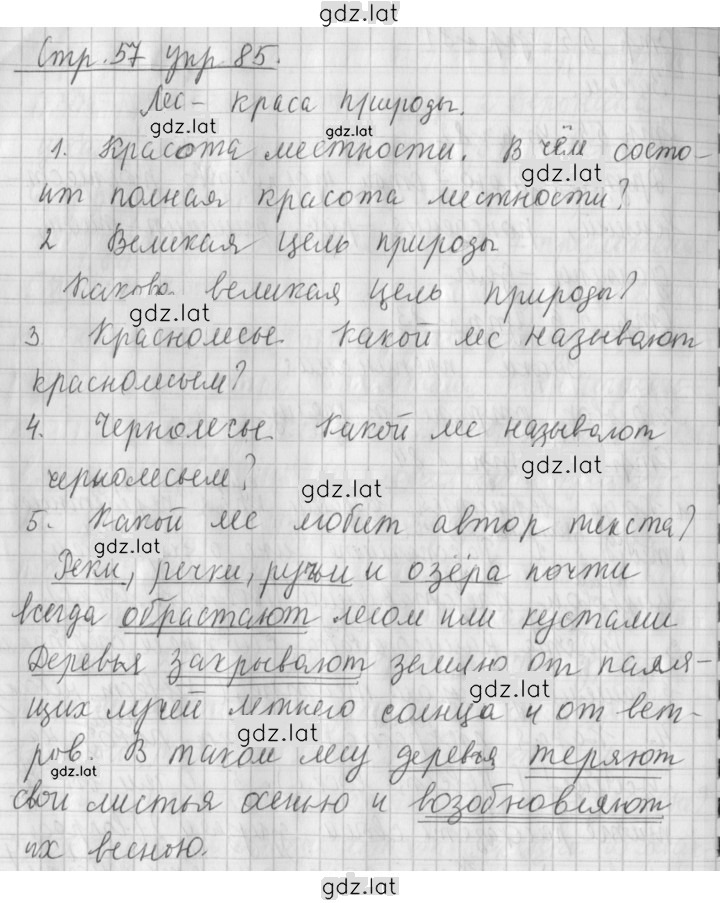 gdz.lat
Стр. 57 упр. 85.
Лес - краса природы.
gdz.lat gdz.lat
1. Красота местности. В чём состо-
gdz.lat
ит полная красота местности?
2 Великая цель природы
Какова великая цель природы?
gdz.lat
3 Краснолесье. Какой лес называют
краснолесьем?
4. Чернолесье. Какой лес называют
gdz.lat
чернолесьем?
gdz.lat
5. Какой лес любит автор текста?
gdz.lat
Реки, речки, ручьи и озёра почти
всегда обрастают лесом или кустами
Деревья закрывают землю от паля-
gdz.lat
щих лучей летнего солнца и от вет-
gdz.lat
ров. В таком лесу деревья теряют
gdz.lat
свои листья осенью и возобновляют
их весною.
gdz.lat